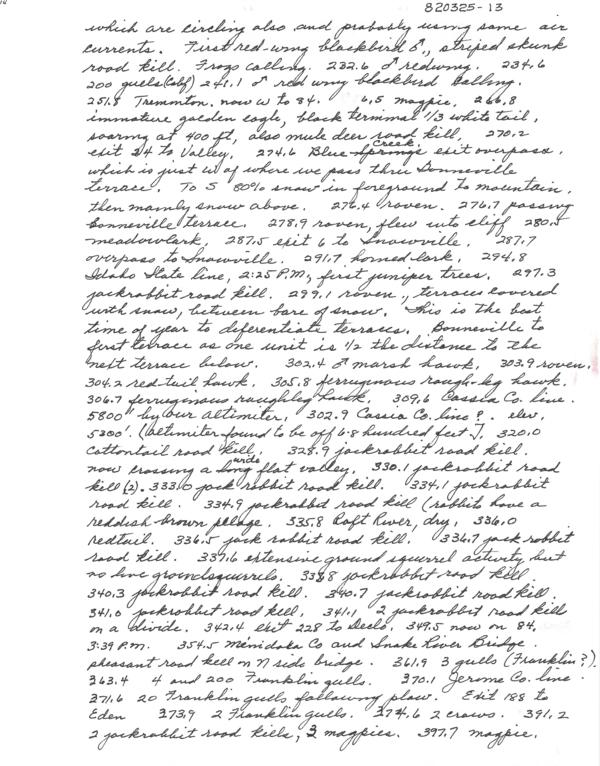 820325-13
which are circling also and probably using same air
currents. First red-wing blackbird ♂., striped skunk
road kill. Frogs calling. 232.6 ♂ redwing. 234.6
200 gulls (Calif) 241.1 ♂ red wing blackbird calling.
251.8 Tremonton, now W to 84. 6.5 magpie, 266.8
immature golden eagle, black terminal 1/3 white tail,
soaring at 400 ft, also mule deer road kill, 270.2
exit 24 to Valley, 274.6 Blue Springs Creek exit overpass,
which is just W of where we pass thru Bonneville
terrace. To S 80% snow in foreground to mountain,
then mainly snow above. 276.4 raven. 276.7 passing
Bonneville terrace. 278.9 raven, flew into cliff 280.5
meadowlark, 287.5 exit 6 to Snowville, 287.7
overpass to Snowville. 291.7 horned lark, 294.8
Idaho State line, 2:25 P.M., first juniper trees. 297.3
jackrabbit road kill. 299.1 raven, terraces covered
with snow, between bare of snow. This is the best
time of year to diferentiate terraces. Bonneville to
first terrace as one unit is 1/2 the distance to the
next terrace below. 302.4 ♂ marsh hawk, 303.9 raven,
304.2 red-tail hawk, 305.8 ferrugenous rough-leg hawk.
306.7 ferrugenous roughleg hawk, 309.6 Cassia Co. line.
5800" by our altimiter, 302.9 Cassia Co. line?. elev.
5300'. (altimiter found to be off 6-8 hundred feet.], 320.0
Cottontail road kill, 328.9 jackrabbit road kill.
now crossing a long wide flat valley, 330.1 jackrabbit road
kill (2). 333.0 jack rabbit road kill. 334.1 jackrabbit
road kill. 334.9 jackrabbit road kill (rabbits have a
reddish brown pelage. 335.8 Raft River, dry, 336.0
redtail. 336.5 jack rabbit road kill. 336.7 jack rabbit
road kill. 337.6 extensive ground squirrel activity but
no live groundsquirrels. 338.8 jackrabbit road kill.
340.3 jackrabbit road kill. 340.7 jackrabbit road kill.
341.0 jackrabbit road kill, 341.1 2 jackrabbit road kill
on a divide. 342.4 exit 228 to Declo, 349.5 now on 84,
3:39 P.M. 354.5 Menidoka Co and Snake River Bridge.
pheasant road kill on N side bridge. 361.9 3 gulls (Franklin?).
363.4 4 and 200 Franklin gulls. 370.1 Jerome Co. line.
371.6 20 Franklin gulls following plow. Exit 188 to
Eden 373.9 2 Franklin gulls. 374.6 2 crows. 391.2
2 jackrabbit road kills, 3 magpies. 397.7 magpie.